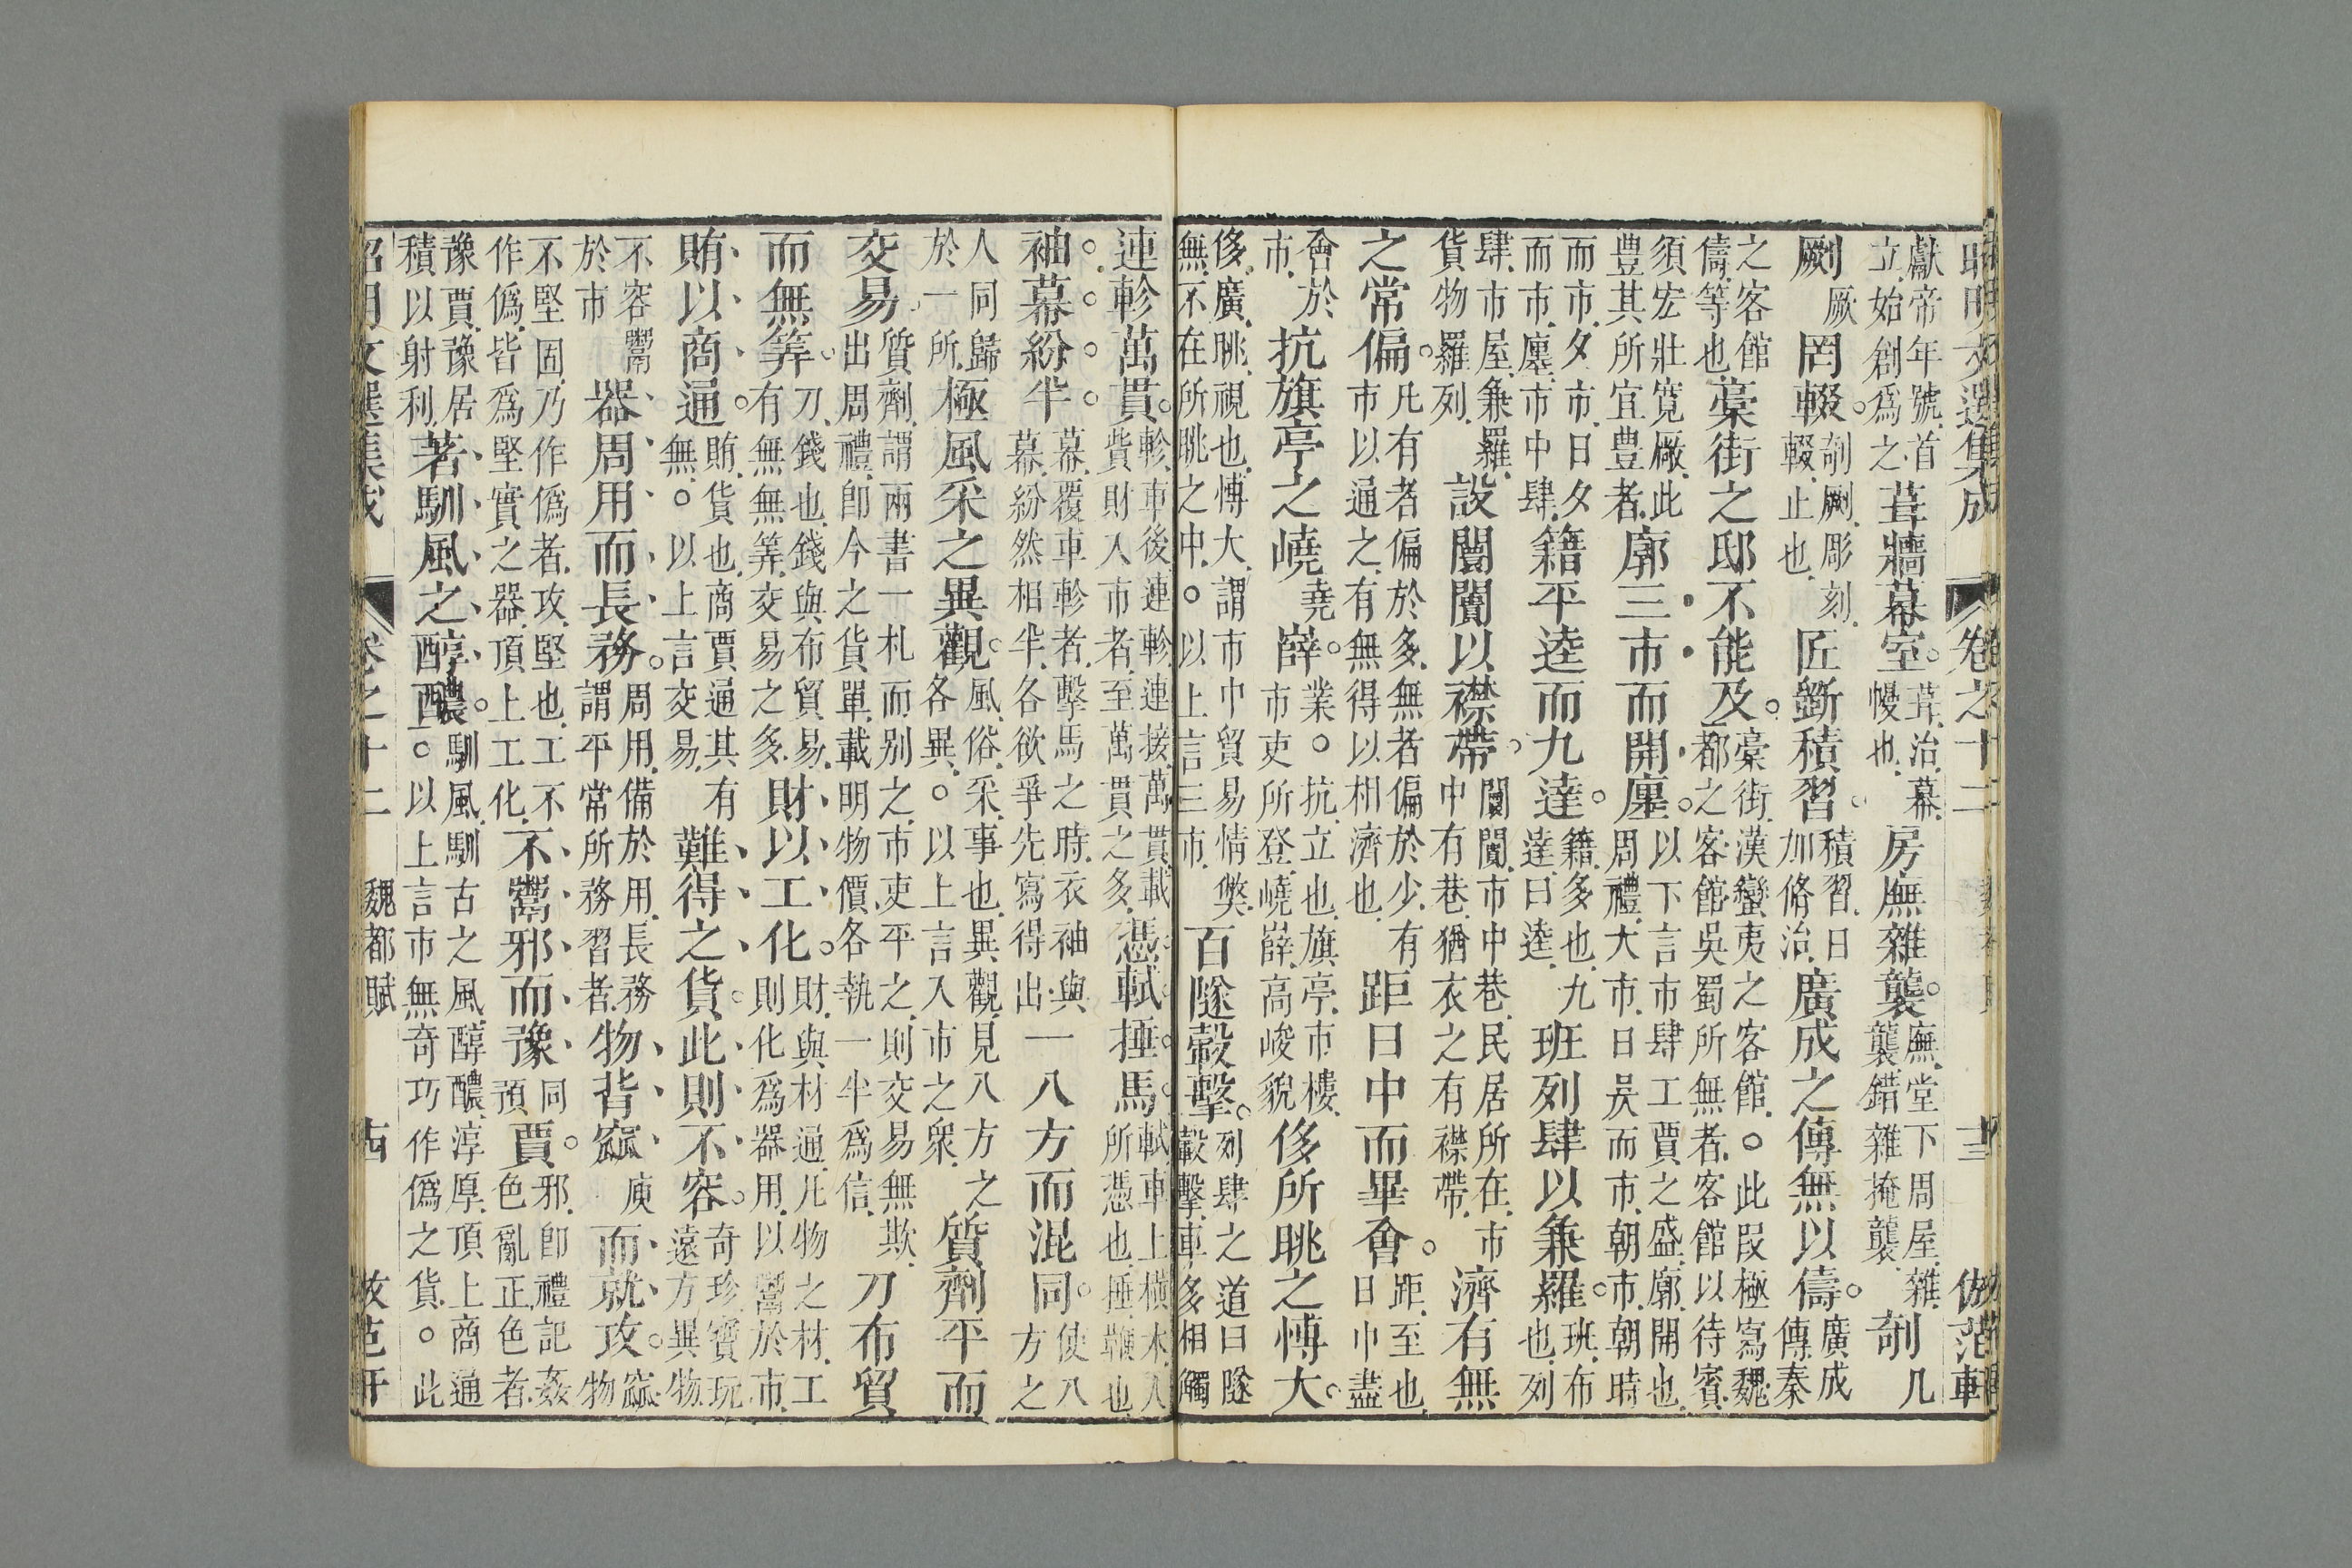 昭明文選集成 卷之十二 十三 倣范軒
獻帝年號首立始創爲之葺牆幕室葺治幕幔也房廡雜襲廡堂下周屋雜襲錯雜掩襲剞几
劂厥罔輟剞劂彫刻輟止也匠斲積習積習日加脩治廣成之傳無以儔廣成傳秦
之客館儔等也槀街之邸不能及槀街漢蠻夷之客館。此段極寫魏都之客館吳蜀所無者客館以待賓
須宏壯寛厰此豊其所宜豊者廓三市而開廛以下言市肆工賈之盛廓開也周禮大市日昃而市朝市朝時
而市夕市日夕而市廛市中肆籍平逵而九達籍多也九達曰逵班列肆以兼羅班布也列
肆市屋兼羅貨物羅列設闤闠以襟帶闤闠市中巷民居所在市中有巷猶衣之有襟帶濟有無
之常偏凡有者偏於多無者偏於少有市以通之有無得以相濟也距日中而畢會距至也日中盡
會於市抗旗亭之嶢堯嶭業。抗立也旗亭市樓市吏所登嶢嶭高峻貌侈所眺之博大
侈廣眺視也博大謂市中貿易情獘無不在所眺之中。以上言三市百隧轂擊列肆之道曰隧轂擊車多相觸
連軫萬貫軫車後連軫連接萬貫載貲財入市者至萬貫之多憑軾捶馬軾車上橫木人所憑也捶鞭也
袖幕紛半幕覆車軫者擊馬之時衣袖與幕紛然相半各欲爭先寫得出一八方而混同使八方之
人同歸於一所極風采之異觀風俗采事也異觀見八方之各異。以上言入市之衆質劑平而
交易質劑謂兩書一札而别之市吏平之則交易無欺出周禮即今之貨單載明物價各執一半爲信刀布貿
而無筭刀錢也錢與布貿易有無無筭交易之多財以工化財與材通凡物之材工則化爲器用以鬻於市
賄以商通賄貨也商賈通其有無。以上言交易難得之貨此則不容奇珍寶玩遠方異物
不容鬻於市器周用而長務周用備於用長務謂平常所務習者物背窳庾而就攻窳物
不堅固乃作僞者攻堅也工不作僞皆爲堅實之器頂上工化不鬻邪而豫同預賈邪即禮記姦色亂正色者
豫賈豫居積以射利著馴風之醇醲馴風馴古之風醇醲淳厚頂上商通。以上言市無奇巧作僞之貨。此
昭明文選集成 卷之十二 魏都賦 十四 倣范軒